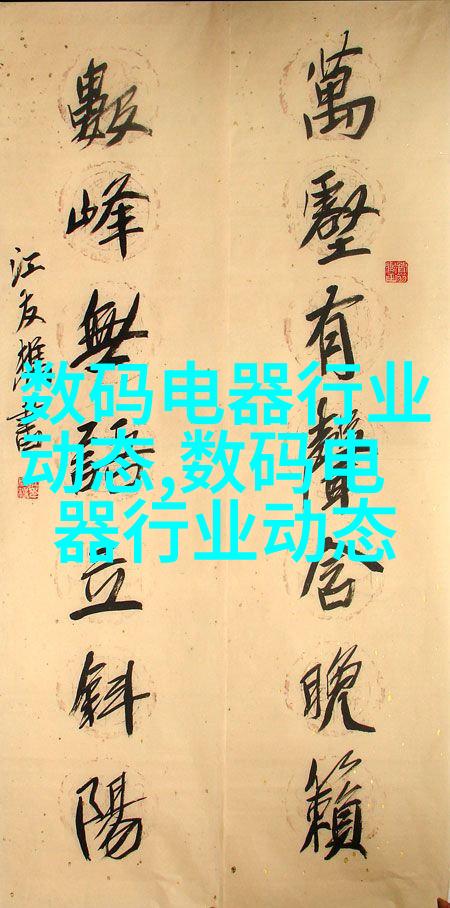 萬壑有聲含晚籟
數峰無語立斜陽
江友樵書
数码电器行业
动态,数码电
器行业动态